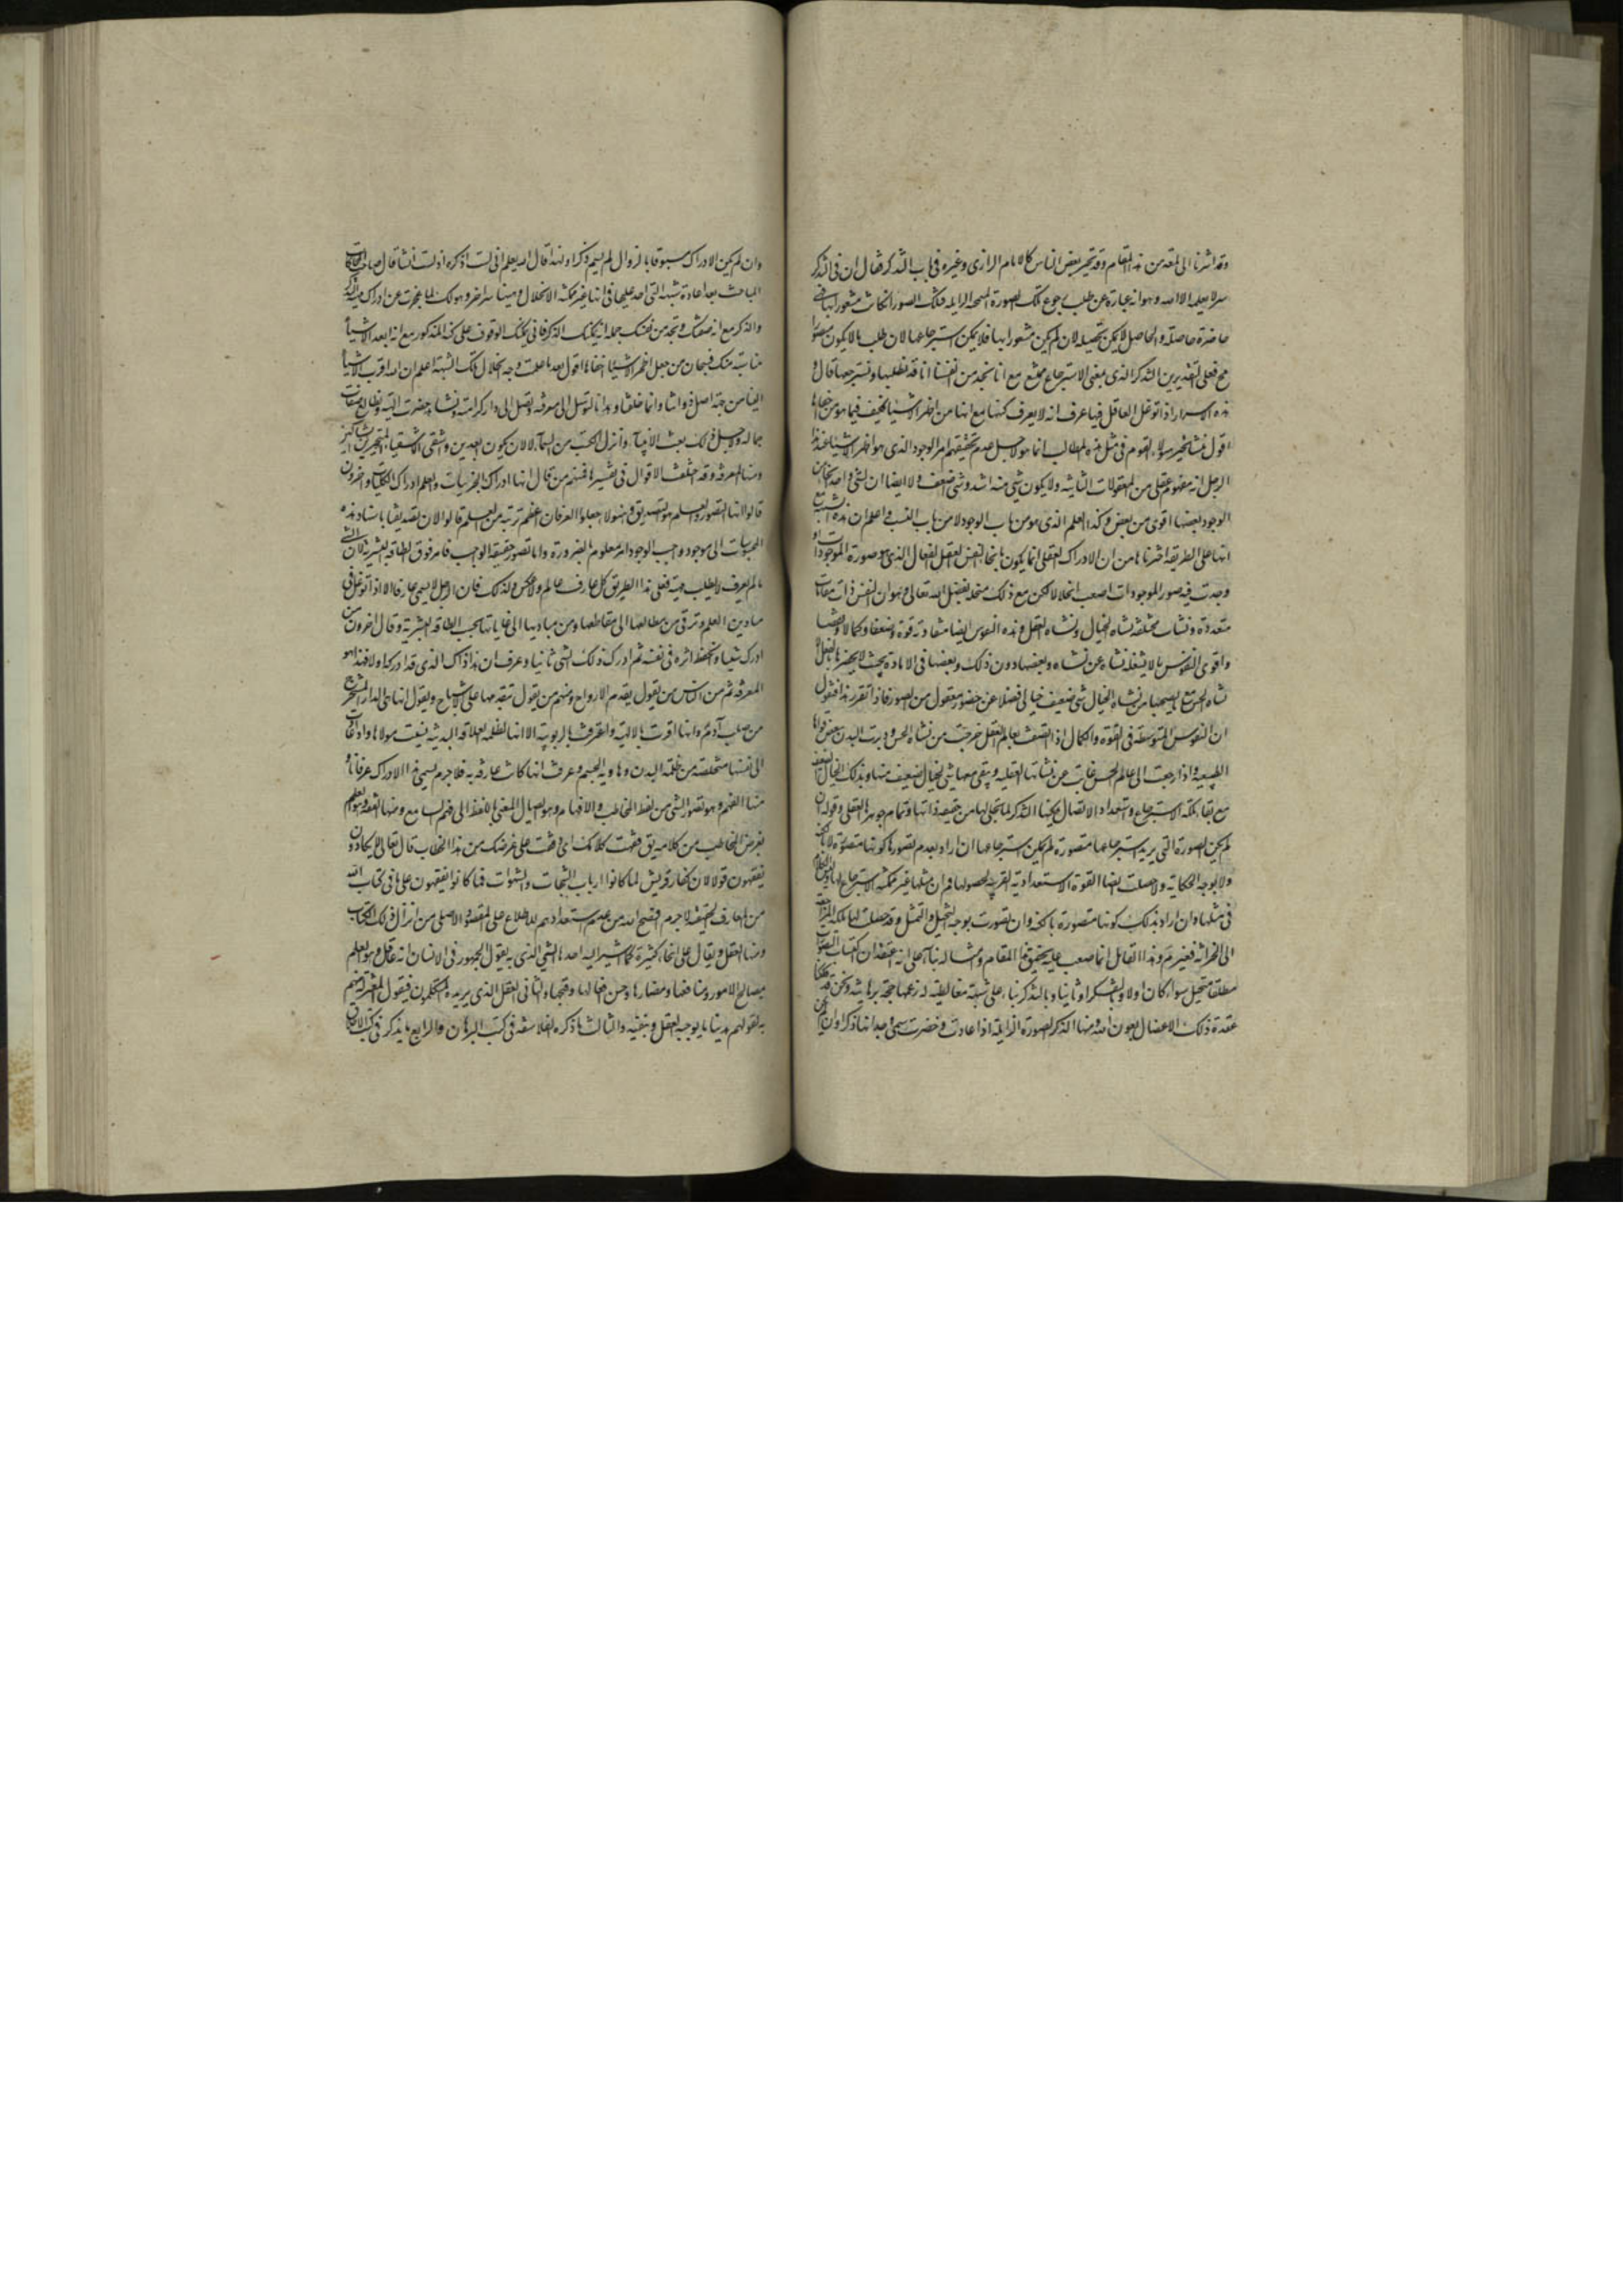 وقد اشرنا الى لمعة من هذا المقام وقد تحير بعض الناس كالامام الرازى وغيره فى باب التذكر فقال ان فى التذكر
سرا لا يعلمه الا الله وهو انه عبارة عن طلب رجوع تلك الصورة المنمحية الزايلة فتلك الصورة ان كانت مشعورا بها فهى
حاضرة حاصلة والحاصل لا يمكن تحصيله وان لم يكن مشعورا بها فلا يمكن استرجاعها لان طلب ما لا يكون متصورا
مح فعلى التقديرين التذكر الذى بمعنى الاسترجاع ممتنع مع انا نجد من انفسنا انا قد نطلبها ونسترجعها قال و
هذه الاسرار اذا توغل العاقل فيها عرف انه لا يعرف كنهها مع انها من اظهر الاشياء فكيف فيما هو من اخفاها
اقول منشأ تحير هؤلاء القوم فى مثل هذه المطالب انما هو لاجل عدم تحقيقهم امر الوجود الذى هو اظهر الاشياء فهذا
الرجل انه مفهوم عقلى من المعقولات الثانية ولا يكون شى منه اشد وشى اضعف ولا ايضا ان لشى واحد انحاء من
الوجود بعضها اقوى من بعض وكذا العلم الذى هو من باب الوجود لا من باب النسب واعلم ان هذه الشبهة مع
انها على الطريقة اشرنا ها من ان الادراك العقلى انما يكون باتحاد النفس بالعقل الفعال الذى هو صورة الموجودات او
وجدت فيه صور الموجودات اصعب انحلالا لكن مع ذلك منحلة بفضل الله تعالى وهو ان النفس ذات مقامات
متعددة ونشات مختلفة نشاة الخيال ونشاة العقل وهذه النفوس ايضا متفاوتة قوة وضعفا وكمالا ونقصا
واقوى النفوس ما لا يشغله نشاة عن نشاة وبعضها دون ذلك وبعضها فى الادنى بحيث لا يحضرها بالفعل
نشاة الحس مع ما يصحبها من نشاة الخيال شى ضعيف خيالى فضلا عن حضور معقول من الصور فاذا تقرر هذا فنقول
ان النفوس المتوسطة فى القوة والكمال اذا اتصفت بعالم العقل خرجت من نشاة الحس ودبرت البدن ببعض قواها
الطبيعية واذا رجعت الى عالم الحس غابت عن نشاتها العقلية ويبقى معها شى كخيال ضعيف منها وبذلك الخيال الضعيف
مع بقاء ملكة الاسترجاع واستعداد الاتصال يمكنها التذكر لما تجلى لها من حقيقة ذاتها وتمام جوهرها العقلى وقوله ان
لم يكن الصورة التى يريد استرجاعها متصورة لم يمكن استرجاعها ان اراد بعدم تصورها كونها متصورة لا بالكنه
ولا بوجه الحكاية ولا حصلت ايضا القوة الاستعدادية القريبة لحصولها فمر ان مثلها غير ممكنة الاسترجاع
فى مثلها وان اراد بذلك كونها متصورة بالكنه وان تصورت بوجه التخيل والتمثل وقد حصلت لها ملكة المراجعة
الى الخزانة فغير مسلم وهذا القائل انما صعب عليه تحقيق هذا المقام وامثاله بناء على انه اعتقد ان اكتساب التصورات
مطلقا مستحيل سواء كان اولا وبالفكر او ثانيا وبالتذكر بناء على شبهة مغالطية زعمها حجة برهانية ونحن قد فككنا
عقدة ذلك الاعضال بعون الله ومنها الذكر الصورة الزايلة اذا عادت وحضرت سمى وجدانها ذكرا وان لم يكن
وان لم يكن الادراك مسبوقا بالزوال لم يسم ذكرا ولهذا قال الله يعلم انى لست اذكره اذ لست انساه قال صاحب
المباحث بعد اعادة شبهته التى اصر عليها فى انها غير ممكنة الانحلال وهيهنا سر اخر وهو انك لما عجزت عن ادراك مهية الذكر
والذكر مع انه صفتك وتجد من نفسك جملة انه يمكنك الذكر فانى يمكنك الوقوف على كنه المذكور مع انه ابعد الاشياء
مناسبة منك فسبحان من جعل اظهر الاشياء اخفاها اقول بعدما علمت وجه انحلال تلك الشبهة اعلم ان الله اقرب الاشياء
الينا من جهة اصل ذواتنا وانما خلقنا وهدانا لنتوسل الى معرفته ونصل الى دار كرامته ونشاهد حضرت الهيته ونطالع صفات
جماله ولاجل ذلك بعث الانبياء وانزل الكتب من السماء لا لان يكون ابعد من واشقى الاشقياء المتحيرين الشاكين
ومنها المعرفة وقد اختلفت الاقوال فى تفسيرها فمنهم من قال انها ادراك الجزئيات والعلم ادراك الكليات واخرون
قالوا انها التصور والعلم هو التصديق وهؤلاء جعلوا العرفان اعظم رتبة من العلم قالوا لان تصديقنا باستناد هذه
المحسوسات الى موجود واجب الوجود امر معلوم بالضرورة واما تصور حقيقة الواجب فامر فوق الطاقة البشرية لان الشى
ما لم يعرف لا يطلب مهيته فعلى هذا الطريق كل عارف عالم ولا عكس ولذلك فان الرجل لا يسمى عارفا الا اذا توغل فى
ميادين العلم وترقى من مطالعها الى مقاطعها ومن مباديها الى غاياتها بحسب الطاقة البشرية وقال اخرون من
ادرك شيئا وانحفظ اثره فى نفسه ثم ادرك ذلك الشى ثانيا وعرف ان هذا ذاك الذى قد ادركه اولا فهذا هو
المعرفة ثم من الناس من يقول بقدم الارواح ومنهم من يقول بتقدمها على الاشباح ويقول انها هى الذر المستخرج
من صلب آدم ع وانها اقرت بالالهية واعترفت بالربوبية الا انها لظلمة العلاقة البدنية نسيت مولاها واذا عادت
الى نفسها متخلصة من ظلمة البدن وهاوية الجسم وعرفت انها كانت عارفة به فلا جرم يسمى هذا الادراك عرفانا و
منها الفهم وهو تصور الشى من لفظ المخاطب والافهام وهو ايصال المعنى باللفظ الى فهم السامع ومنها الفقه وهو العلم
بغرض المخاطب من كلامه يق فقهت كلامك اى وقفت على غرضك من هذا الخطاب قال تعالى لا يكادون
يفقهون قولا لان كفار قريش لما كانوا ارباب الشبهات والشهوات فما كانوا يفقهون على ما فى كتاب الله
من المعارف الحقيقة لا جرم افصح الله من عدم استعدادهم للاطلاع على المقصود الاصلى من انزال ذلك الكتاب
ومنها العقل ويقال على انحاء كثيرة كما سنشير اليه احدها الشى الذى به يقول الجمهور فى الانسان انه عاقل وهو العلم
بمصالح الامور ومنافعها ومضارها وحسن افعالها وقبحها والثانى العقل الذى يريده المتكلمون فيقول المعتزلة منهم
به لقولهم هذا ما يوجبه العقل وينفيه والثالث ما ذكره الفلاسفة فى كتب البرهان والرابع ما يذكر فى كتب الاخلاق